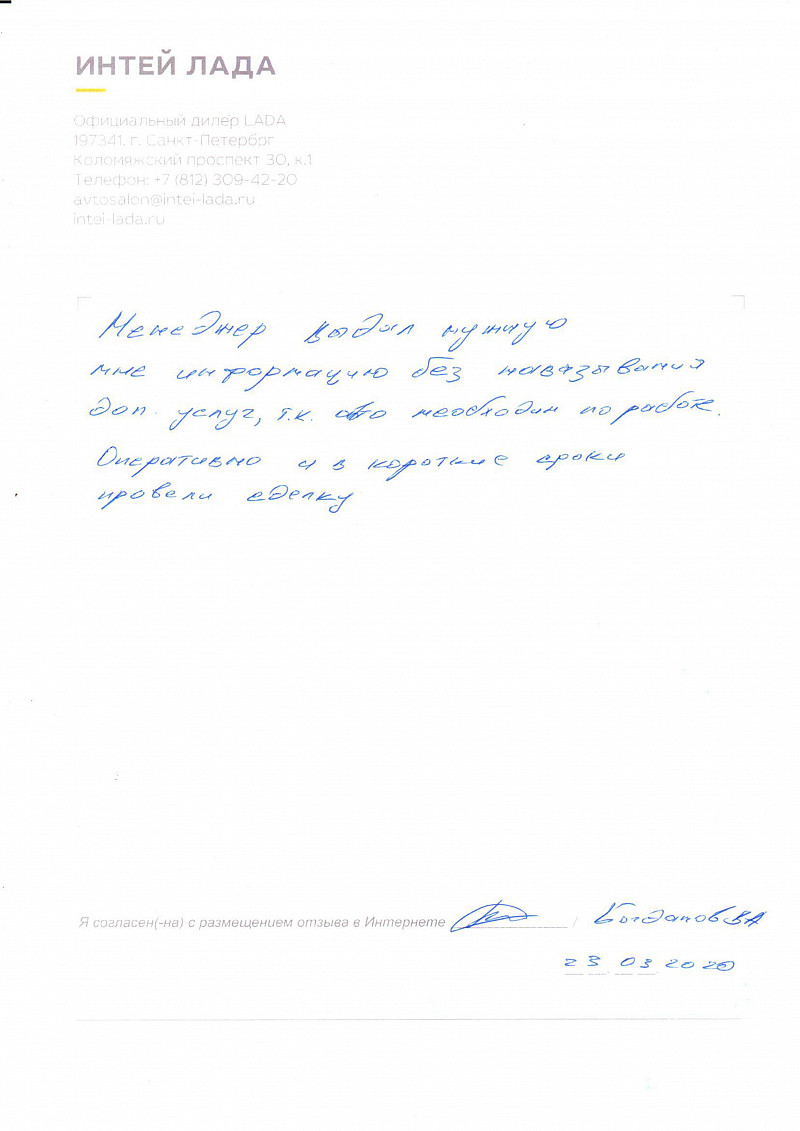 ИНТЕЙ ЛАДА
Официальный дилер LADA
197341, г. Санкт-Петербрг
Коломяжский проспект 30, к.1
Телефон: +7 (812) 309-42-20
avtosalon@intei-lada.ru
intei-lada.ru
Менеджер выдал нужную
мне информацию без навязываний
доп. услуг, т.к. необходим по работе.
Оперативно и в короткие сроки
провели сделку
Я согласен(-на) с размещением отзыва в Интернете / Богданов
23 03 2020